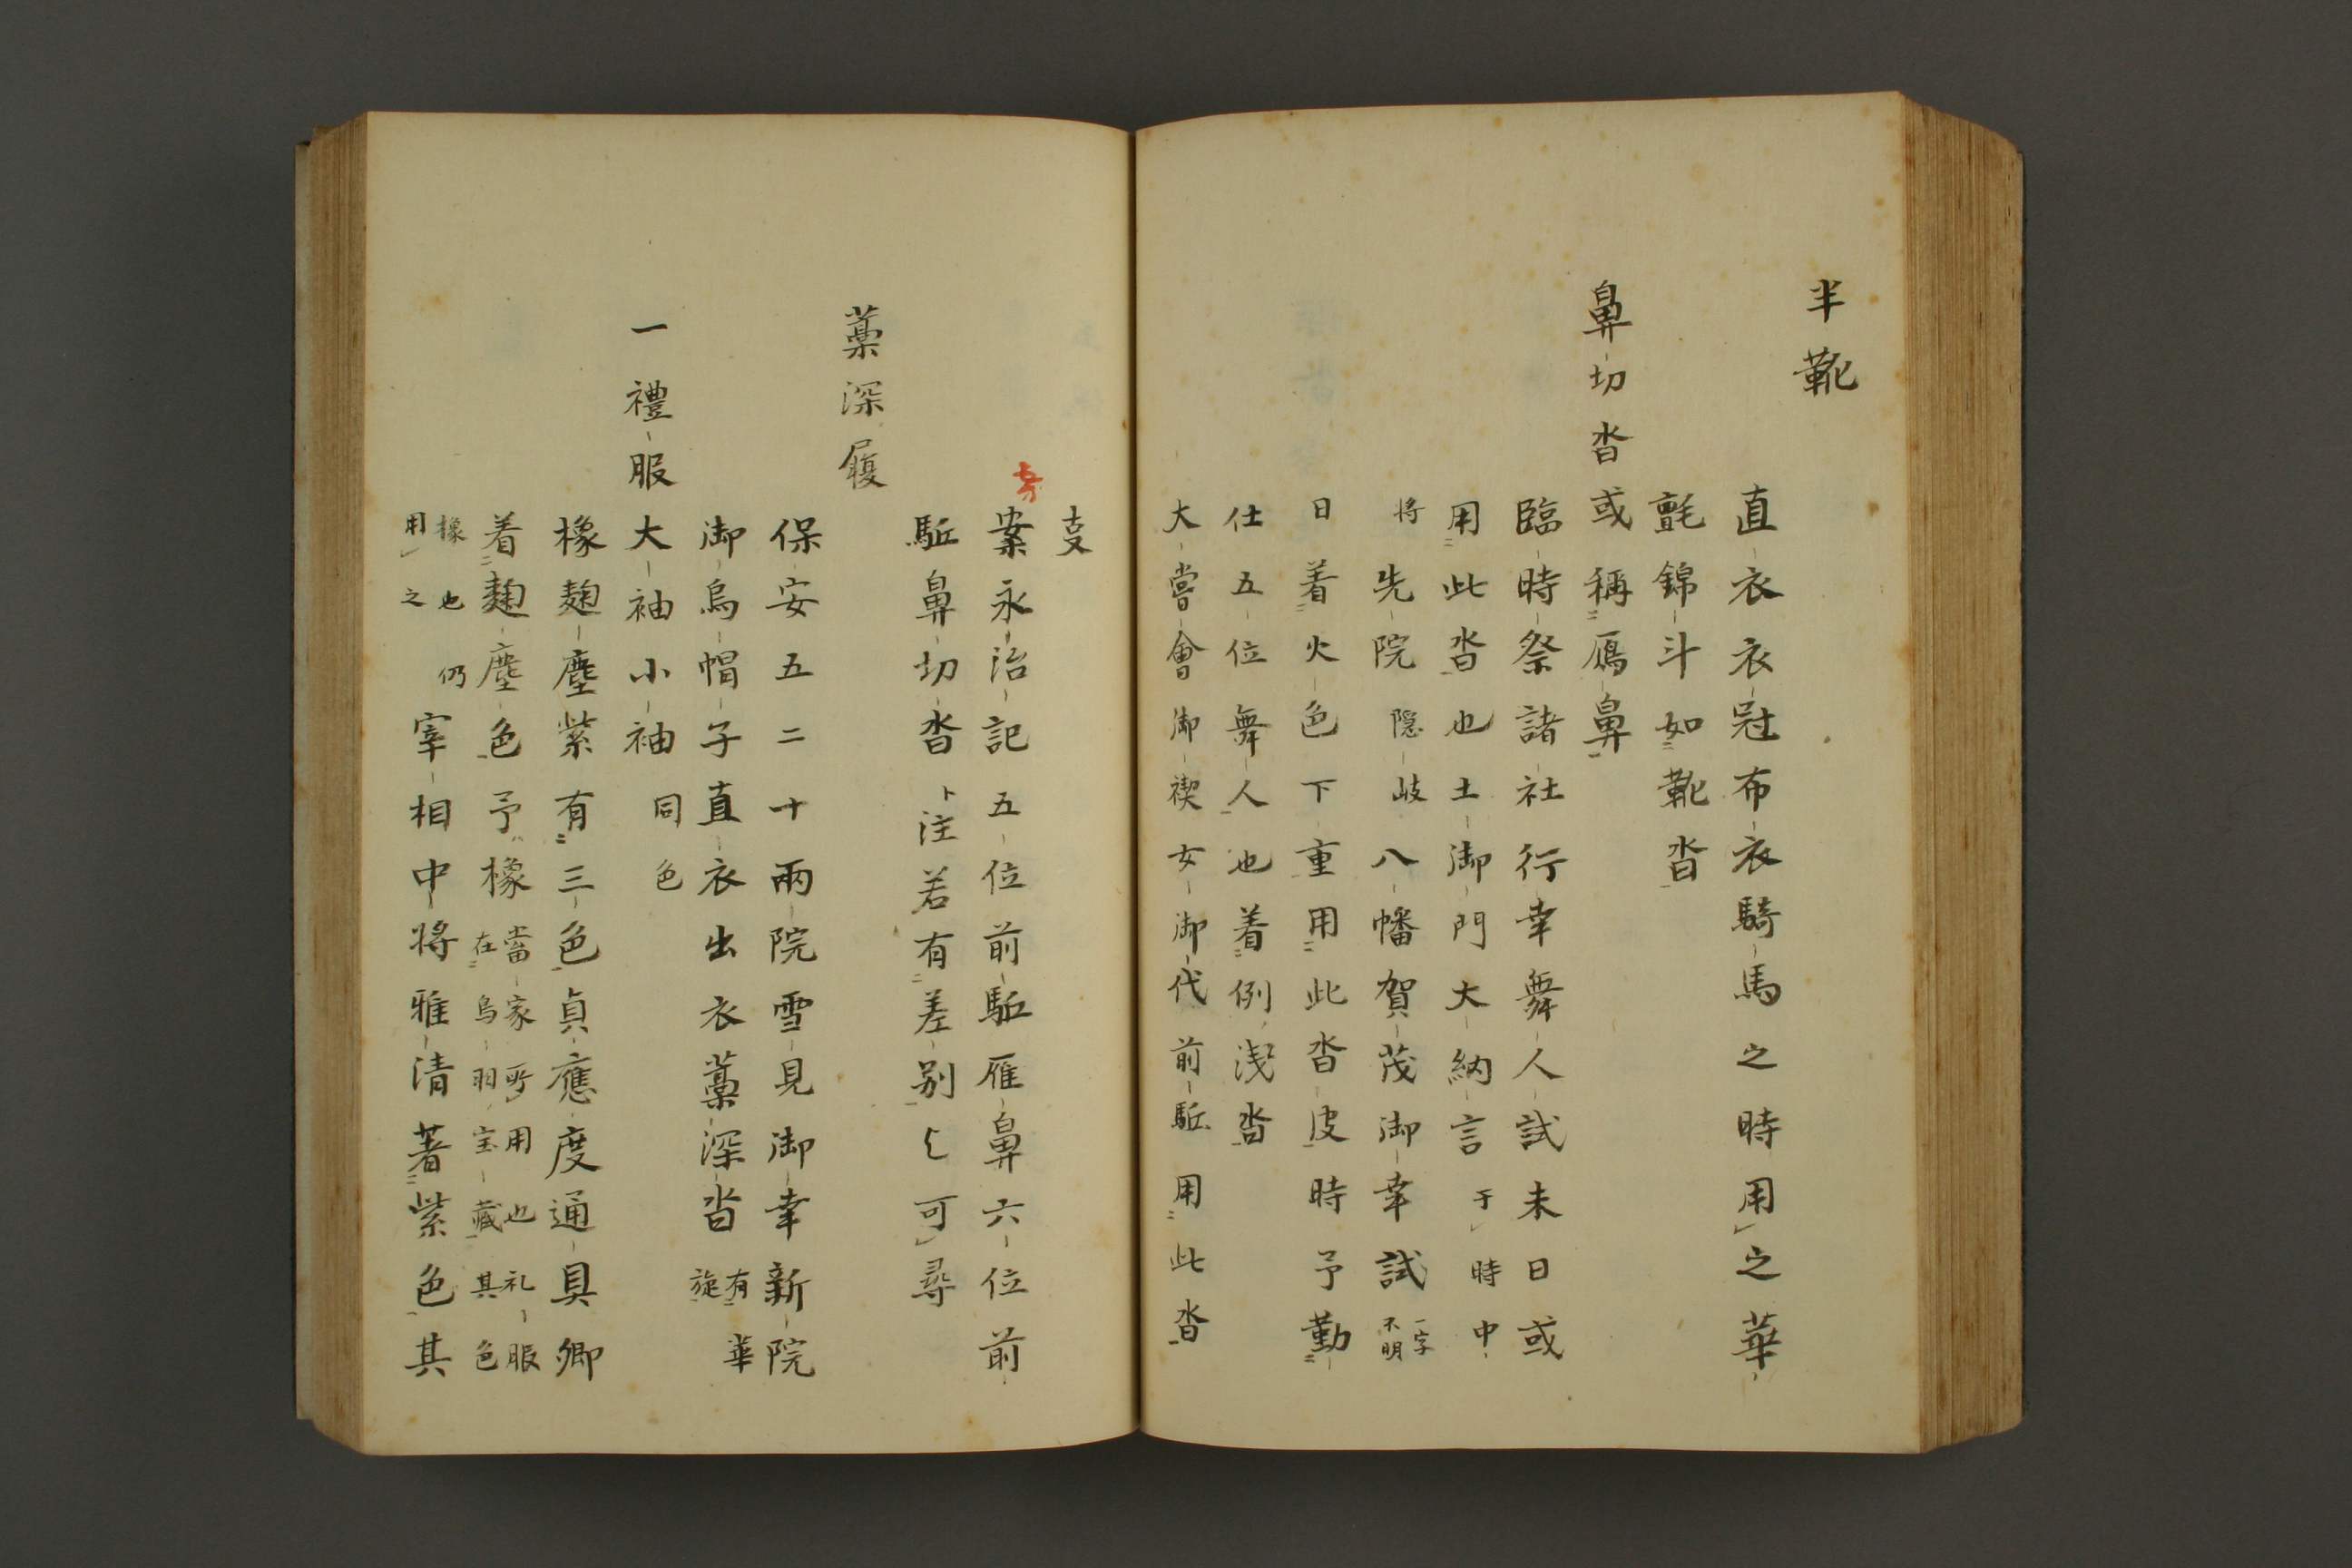 半靴
直衣衣冠布衣騎馬之時用之華
氈錦斗如靴沓
鼻切沓或稱鴈鼻
臨時祭諸社行幸舞人試未日或
用此沓也土御門大納言于時中
将先院隠岐八幡賀茂御幸試一字不明
日着火色下重用此沓皮時予勤
仕五位舞人也着例浅沓
大嘗會御禊女御代前駈用此沓
支
案永治記五位前駈雁鼻六位前
駈鼻切沓ト注若有差別乀可尋
藁深履
保安五二十兩院雪見御幸新院
御烏帽子直衣出衣藁深沓有華旋
一禮服
大袖小袖同色
橡麹塵紫有三色貞應度通具卿
着麹塵色予橡當家所用也礼服在鳥羽宝藏其色
橡也仍用之宰相中将雅清著紫色其